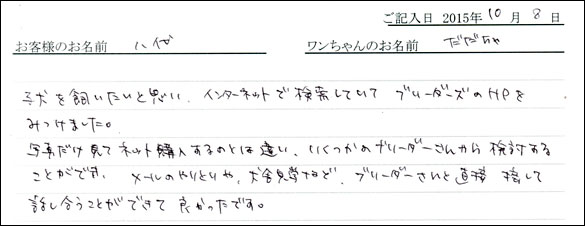 ご記入日 2015年 10 月 8 日
お客様のお名前 八代 ワンちゃんのお名前 だだちゃ
子犬を飼いたいと思い、インターネットで検索していて ブリーダーズのHPを
みつけました。
写真だけ見てネット購入するのとは違い、いくつかのブリーダーさんから検討する
ことができ、メールのやりとりや、犬舎見学など、ブリーダーさんと直接 接して
話し合うことができて 良かったです。